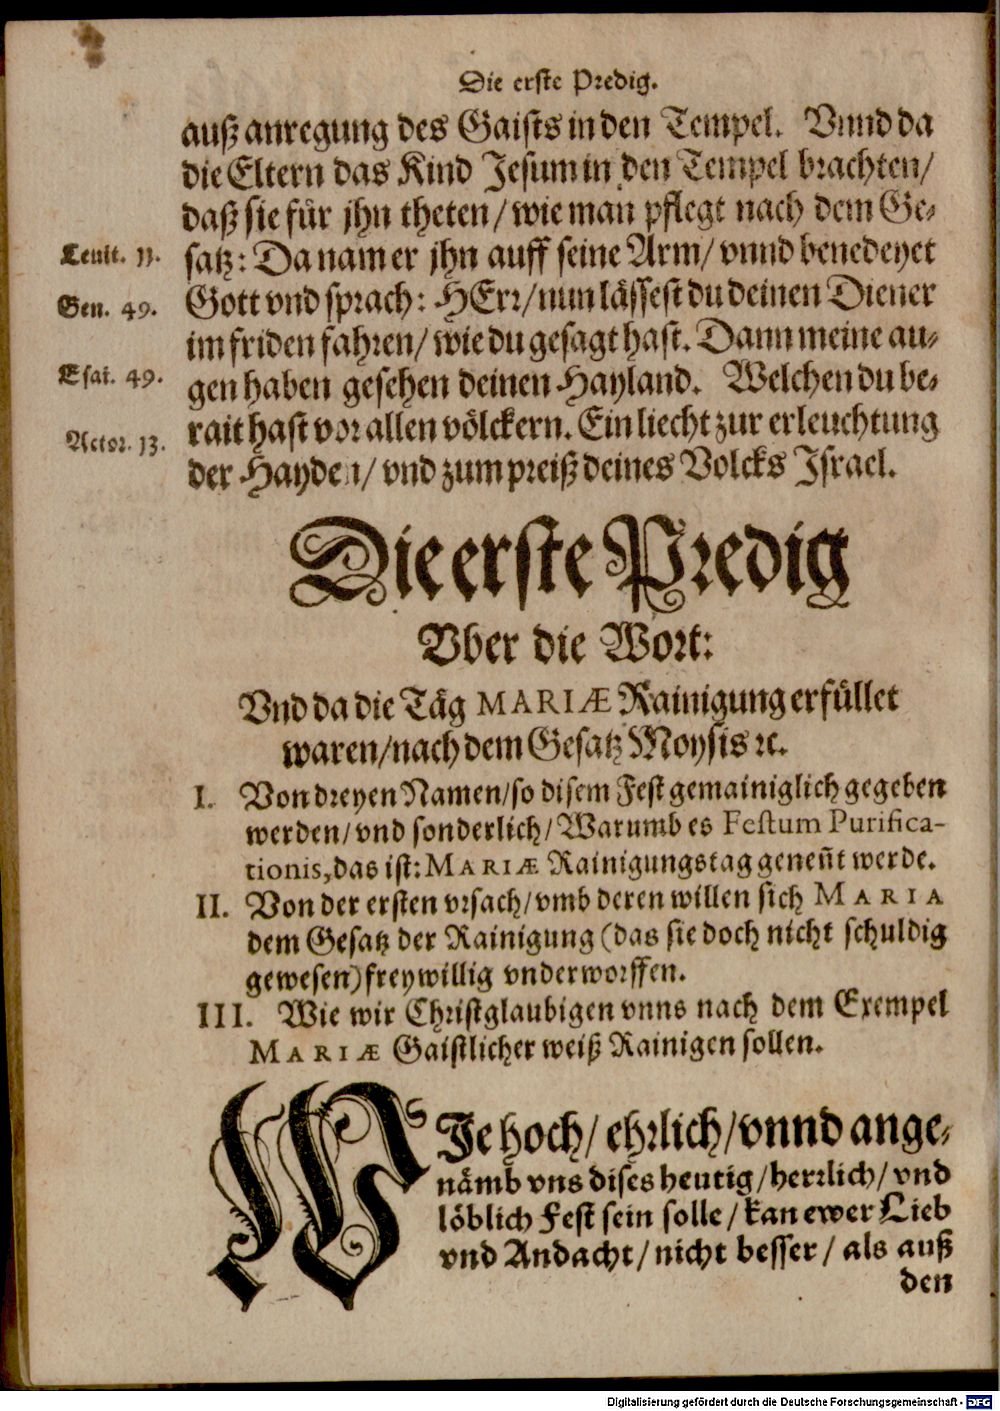 Die erste Predig.
auß anregung des Gaists in den Tempel. Vnnd da
die Eltern das Kind Jesum in den Tempel brachten/
daß sie für jhn theten/ wie man pflegt nach dem Ge-
Leuit. 11.
satz: Da nam er jhn auff seine Arm/ vnnd benedeyet
Gen. 49.
Gott vnd sprach: HErr/ nun lässest du deinen Diener
im friden fahren/ wie du gesagt hast. Dann meine au-
Esai. 49.
gen haben gesehen deinen Hayland. Welchen du be-
Actor. 13.
rait hast vor allen völckern. Ein liecht zur erleuchtung
der Hayden/ vnd zum preiß deines Volcks Israel.
Die erste Predig
Vber die Wort:
Vnd da die Täg MARIÆ Rainigung erfüllet
waren/ nach dem Gesatz Moysis ꝛc.
I. Von dreyen Namen/ so disem Fest gemainiglich gegeben
werden/ vnd sonderlich/ Warumb es Festum Purifica-
tionis, das ist: MARIÆ Rainigungstag geneñt werde.
II. Von der ersten vrsach/ vmb deren willen sich MARIA
dem Gesatz der Rainigung (das sie doch nicht schuldig
gewesen) freywillig vnderworffen.
III. Wie wir Christglaubigen vnns nach dem Exempel
MARIÆ Gaistlicher weiß Rainigen sollen.
WJe hoch/ ehrlich/ vnnd ange-
nämb vns dises heutig/ herrlich/ vnd
löblich Fest sein solle/ kan ewer Lieb
vnd Andacht/ nicht besser/ als auß
den
Digitalisierung gefördert durch die Deutsche Forschungsgemeinschaft - DFG